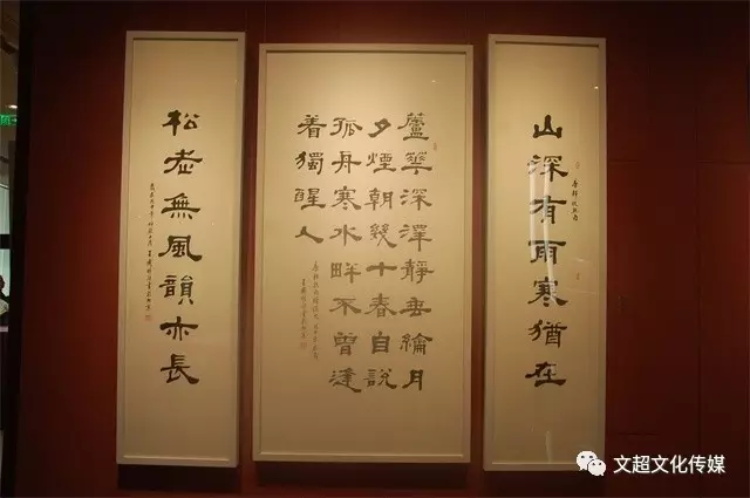 山深有雨寒猶在
蘆華深澤靜垂綸月
夕煙朝幾十春自說
孤舟寒水畔不曾逢
着獨醒人
松老無風韻亦長
文超文化传媒